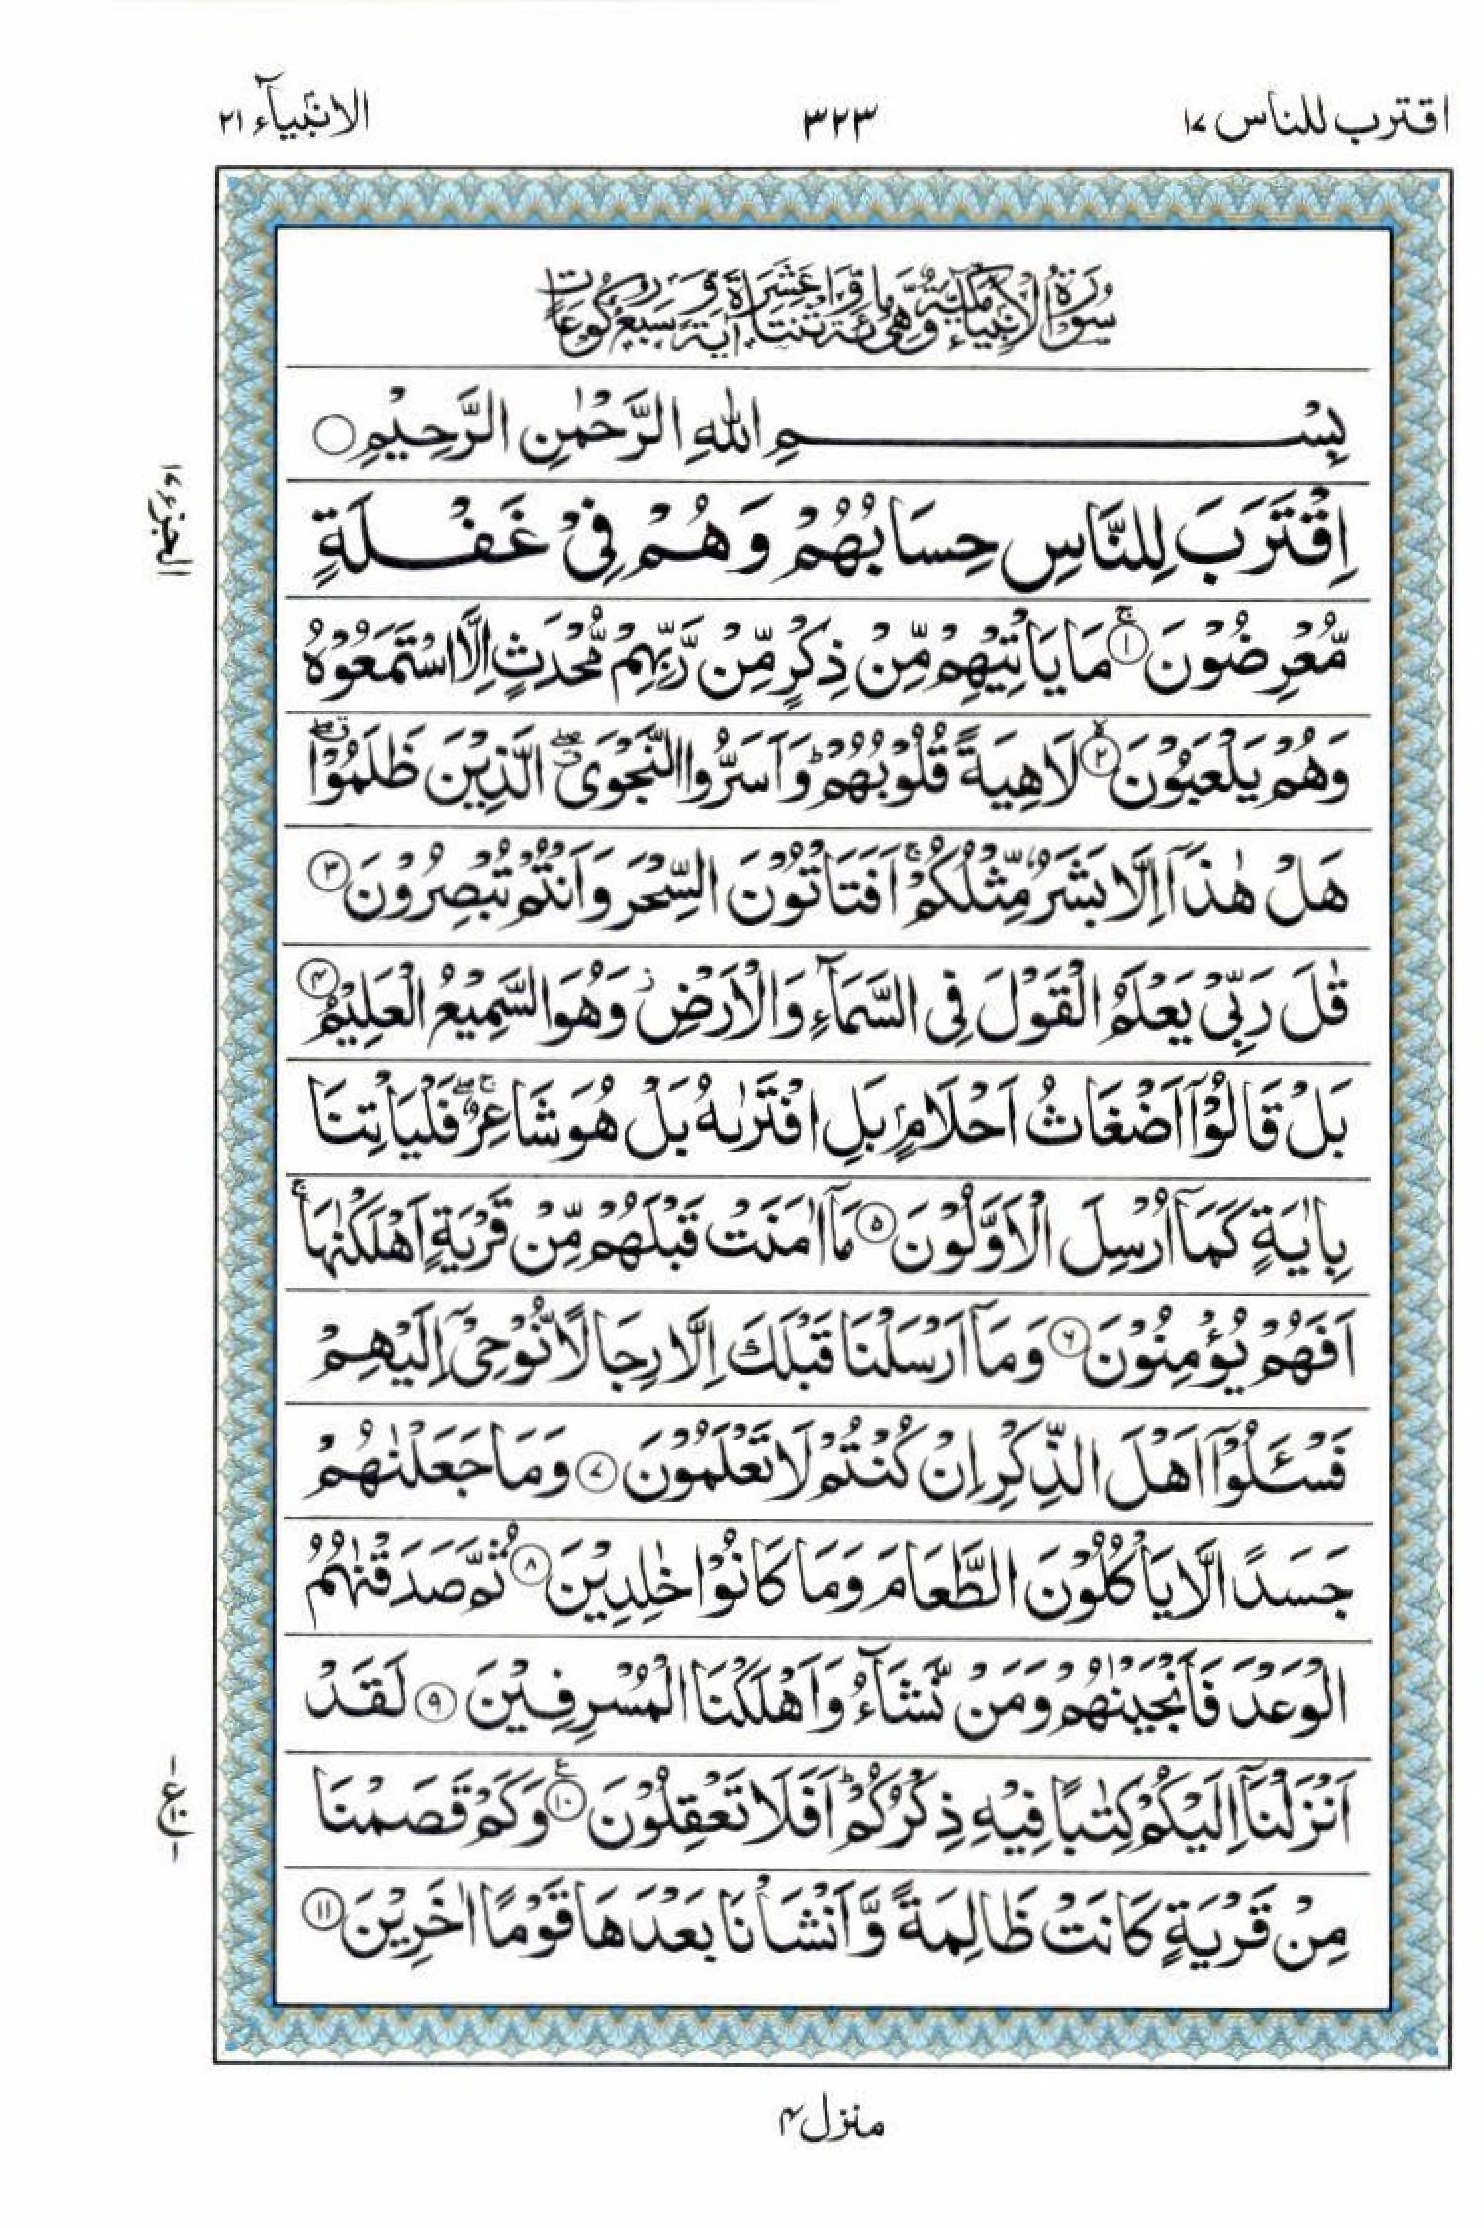 اقترب للناس ١٧
٣٢٣
الانبيآء ٢١
سُوۡرَةُ الۡاَنۡۢبِيَآءِ مَكِّيَّةٌ وَّهِىَ مِائَةٌ وَّاثۡنَتَا عَشَرَةَ اٰيَةً وَّسَبۡعُ رُكُوۡعَاتٍ
بِسۡمِ اللهِ الرَّحۡمٰنِ الرَّحِيۡمِ ○
اِقۡتَرَبَ لِلنَّاسِ حِسَابُهُمۡ وَهُمۡ فِىۡ غَفۡلَةٍ
مُّعۡرِضُوۡنَ ۚ‏ ﴿١﴾ مَا يَاۡتِيۡهِمۡ مِّنۡ ذِكۡرٍ مِّنۡ رَّبِّهِمۡ مُّحۡدَثٍ اِلَّا اسۡتَمَعُوۡهُ
وَهُمۡ يَلۡعَبُوۡنَ ۙ‏ ﴿٢﴾ لَاهِيَةً قُلُوۡبُهُمۡ ؕ وَاَسَرُّوا النَّجۡوَى ۖ الَّذِيۡنَ ظَلَمُوۡا ۖ
هَلۡ هٰذَاۤ اِلَّا بَشَرٌ مِّثۡلُكُمۡ ۚ اَفَتَاۡتُوۡنَ السِّحۡرَ وَاَنۡتُمۡ تُبۡصِرُوۡنَ ﴿٣﴾
قٰلَ رَبِّىۡ يَعۡلَمُ الۡقَوۡلَ فِى السَّمَآءِ وَالۡاَرۡضِ ز وَهُوَ السَّمِيۡعُ الۡعَلِيۡمُ ﴿٤﴾
بَلۡ قَالُوۡۤا اَضۡغَاثُ اَحۡلَامٍۢ بَلِ افۡتَرٰٮهُ بَلۡ هُوَ شَاعِرٌ ۖۚ فَلۡيَاۡتِنَا
بِاٰيَةٍ كَمَاۤ اُرۡسِلَ الۡاَوَّلُوۡنَ ﴿٥﴾ مَاۤ اٰمَنَتۡ قَبۡلَهُمۡ مِّنۡ قَرۡيَةٍ اَهۡلَكۡنٰهَا ۚ
اَفَهُمۡ يُؤۡمِنُوۡنَ ﴿٦﴾ وَمَاۤ اَرۡسَلۡنَا قَبۡلَكَ اِلَّا رِجَالًا نُّوۡحِىۡۤ اِلَيۡهِمۡ
فَسۡـَٔلُوۡۤا اَهۡلَ الذِّكۡرِ اِنۡ كُنۡتُمۡ لَا تَعۡلَمُوۡنَ ﴿٧﴾ وَمَا جَعَلۡنٰهُمۡ
جَسَدًا لَّا يَاۡكُلُوۡنَ الطَّعَامَ وَمَا كَانُوۡا خٰلِدِيۡنَ ﴿٨﴾ ثُمَّ صَدَقۡنٰهُمُ
الۡوَعۡدَ فَاَنۡجَيۡنٰهُمۡ وَمَنۡ نَّشَآءُ وَاَهۡلَكۡنَا الۡمُسۡرِفِيۡنَ ﴿٩﴾ لَقَدۡ
اَنۡزَلۡنَاۤ اِلَيۡكُمۡ كِتٰبًا فِيۡهِ ذِكۡرُكُمۡ ؕ اَفَلَا تَعۡقِلُوۡنَ ﴿١٠﴾ ع وَكَمۡ قَصَمۡنَا
مِنۡ قَرۡيَةٍ كَانَتۡ ظَالِمَةً وَّاَنۡشَاۡنَا بَعۡدَهَا قَوۡمًا اٰخَرِيۡنَ ﴿١١﴾
الجزء ١٧
١ ع ١٠ ١
منزل ٤